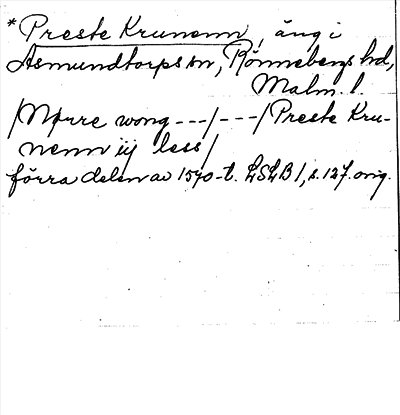 * Preste Krunenn, äng i
Asmundtorps sn, Rönnebergs hd,
Malm. l.
/Nørre wong ---/---/Preste Kru-
nenn iij less/
förra delen av 1570-t. LSLB I, s. 127. orig.